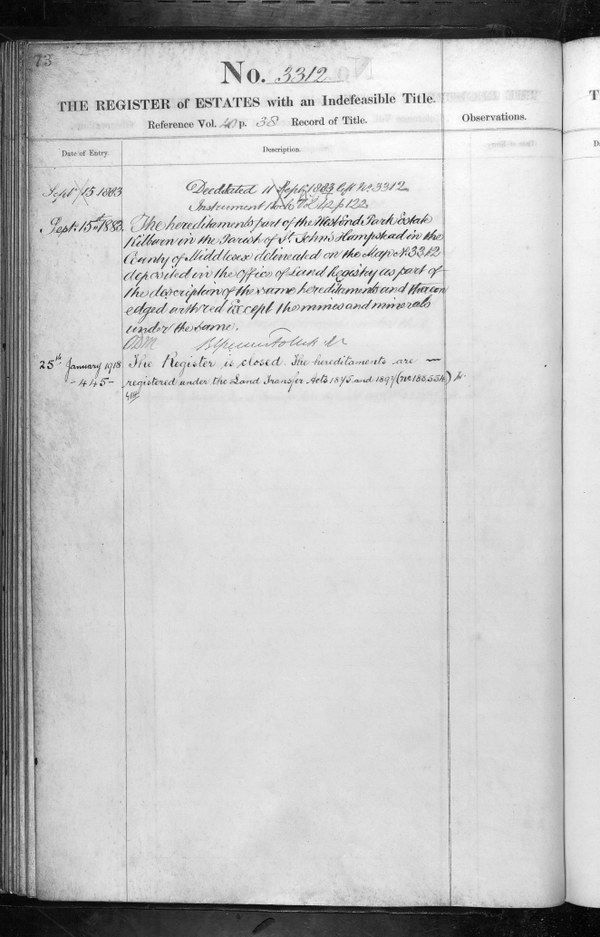 73
No. 3312
THE REGISTER of ESTATES with an Indefeasible Title.
Reference Vol. 40 p. 38 Record of Title.
Observations.
Date of Entry.
Description.
Sept 15 1883
Dedicated 11 Sept. 1883 No 3312
Instrument 42 p 122
Sept. 15th 1883.
The hereditaments part of the West End Park Estate
Kilburn in the Parish of St. Johns Hampstead in the
County of Middlesex delineated on the Map No 3312
deposited in the office of Land Registry as part of
the description of the same hereditaments and thereon
edged with red Except the mines and minerals
under the same.
25th January 1918
The Register is closed. The hereditaments are
- 445 -
registered under the Land Transfer Acts 1875 and 1897